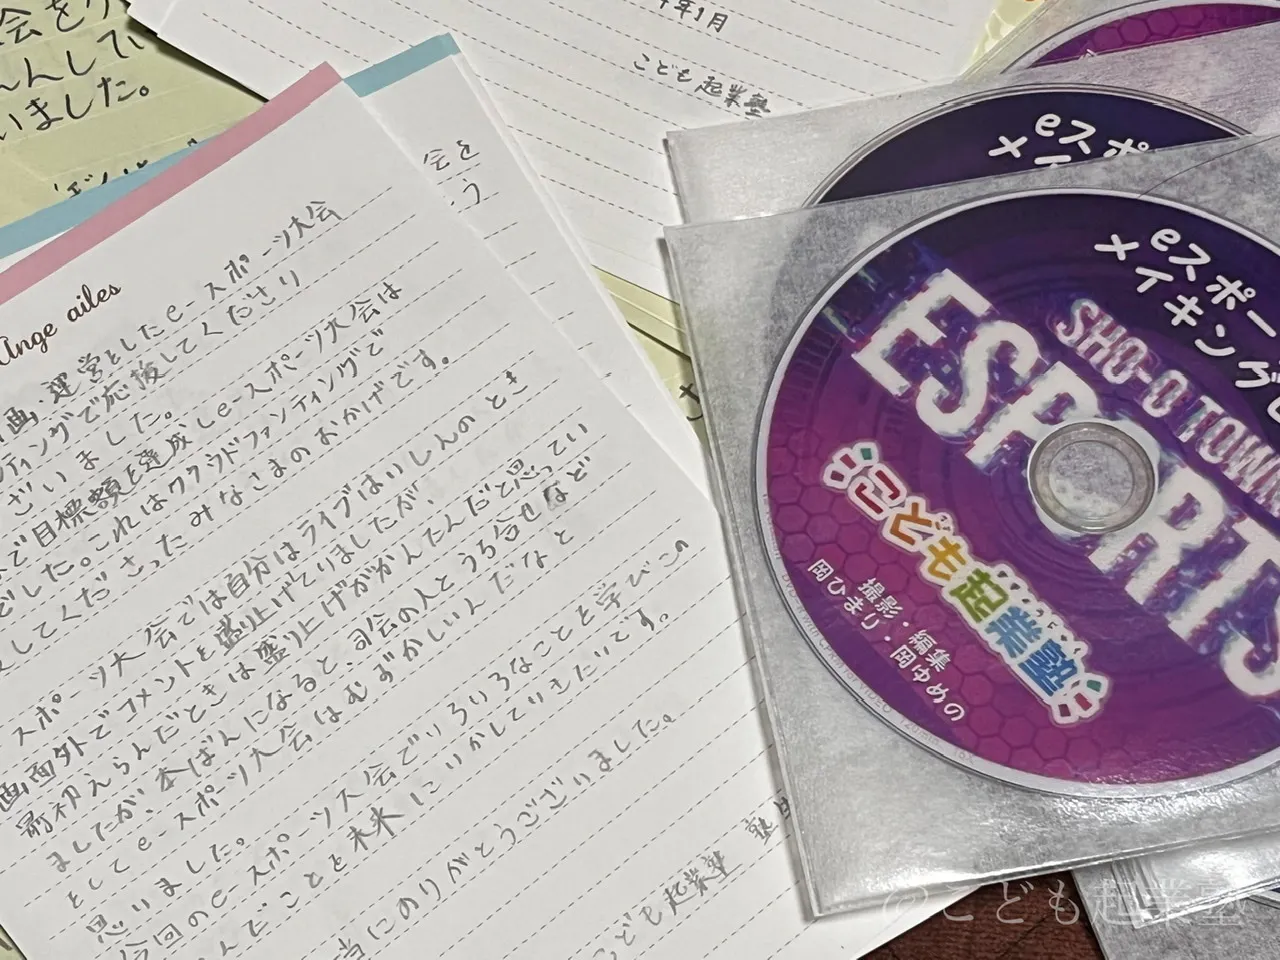 会を
んしてい
いました。
年1月
こども起業塾
会を
Ange ailes
画・運営としたe-スポーツ大会
ティングで応援してくださり
ざいました。
で目標額を達成しe-スポーツ大会は
でした。これはクラウドファンティングで
してくださったみなさまのおかげです。
スポーツ大会では自分はライブはいしんのとき
画面外でコメントを盛り上げてりましたが、
前初えらんだときは盛り上げがかんたんだと思ってい
ましたが、本ばんになると、司会の人とうち合せなど
をしてe-スポーツ大会はむずかしいんだなと
思いました。
今回のe-スポーツ大会でいろいろなことを学びこの
んでことを未来にいかしていきたいです。
当にありがとうございました。
こども起業塾
塾
eスポ
メイ
eスポー
メイキング
SHO-O TOWN
ESPORTS
こども起業塾
撮影・編集
岡ひまり・岡ゆめの
@こども起業塾